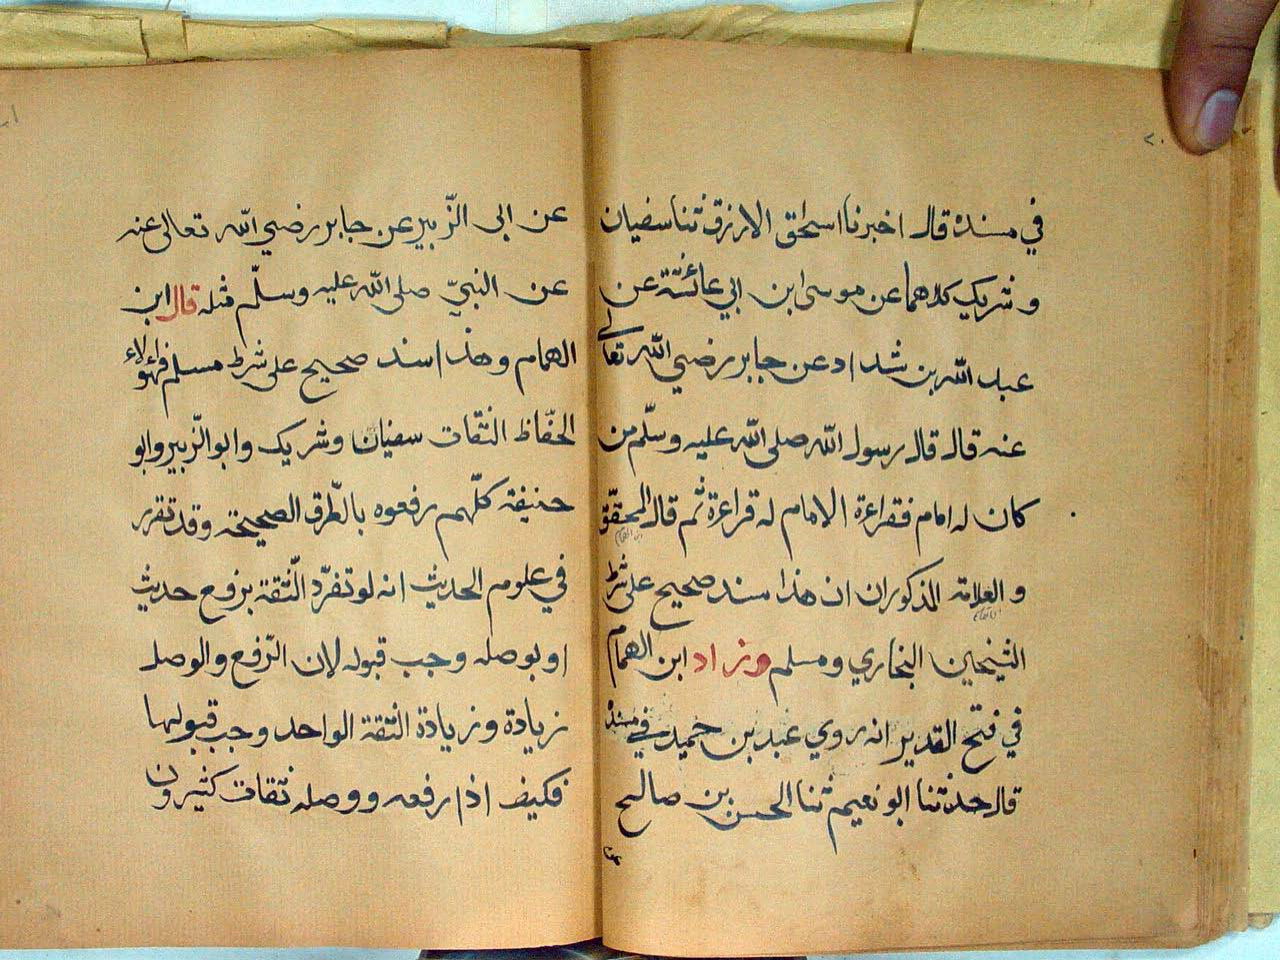 ٢٠
في مسنده قال اخبرنا اسحٰق الازرق ثنا سفيان
وشريك كلاهما عن موسى ابن ابي عائشة عن
عبد الله بن شداد عن جابر رضي الله تعالى
عنه قال قال رسول الله صلى الله عليه وسلّم من
كان له امام فقراءة الامام له قراءة ثم قال المحقّق
ابن الهمام
والعلامة المذكوران ان هذا سند صحيح على شرط
الشيخين البخاري ومسلم وزاد ابن الهمام
في فتح القدير انه روي عبد بن حميد في مسنده
قال حدثنا ابو نعيم ثنا الحسن بن صالح
عن
عن ابى الزّبير عن جابر رضي الله تعالى عنه
عن النبيّ صلى الله عليه وسلّم مثله قال ابن
الهمام وهذا سند صحيح على شرط مسلم فهؤلاء
الحفّاظ الثقات سفيان وشريك وابو الزّبير وابو
حنيفة كلّهم رفعوه بالطّرق الصحيحة وقد تقرر
في علوم الحديث انه لو تفرّد الثّقة برفع حديث
او بوصله وجب قبوله لان الرّفع والوصل
زيادة وزيادة الثقة الواحد وجب قبولها
فكيف اذا رفعه ووصله ثقات كثيرون